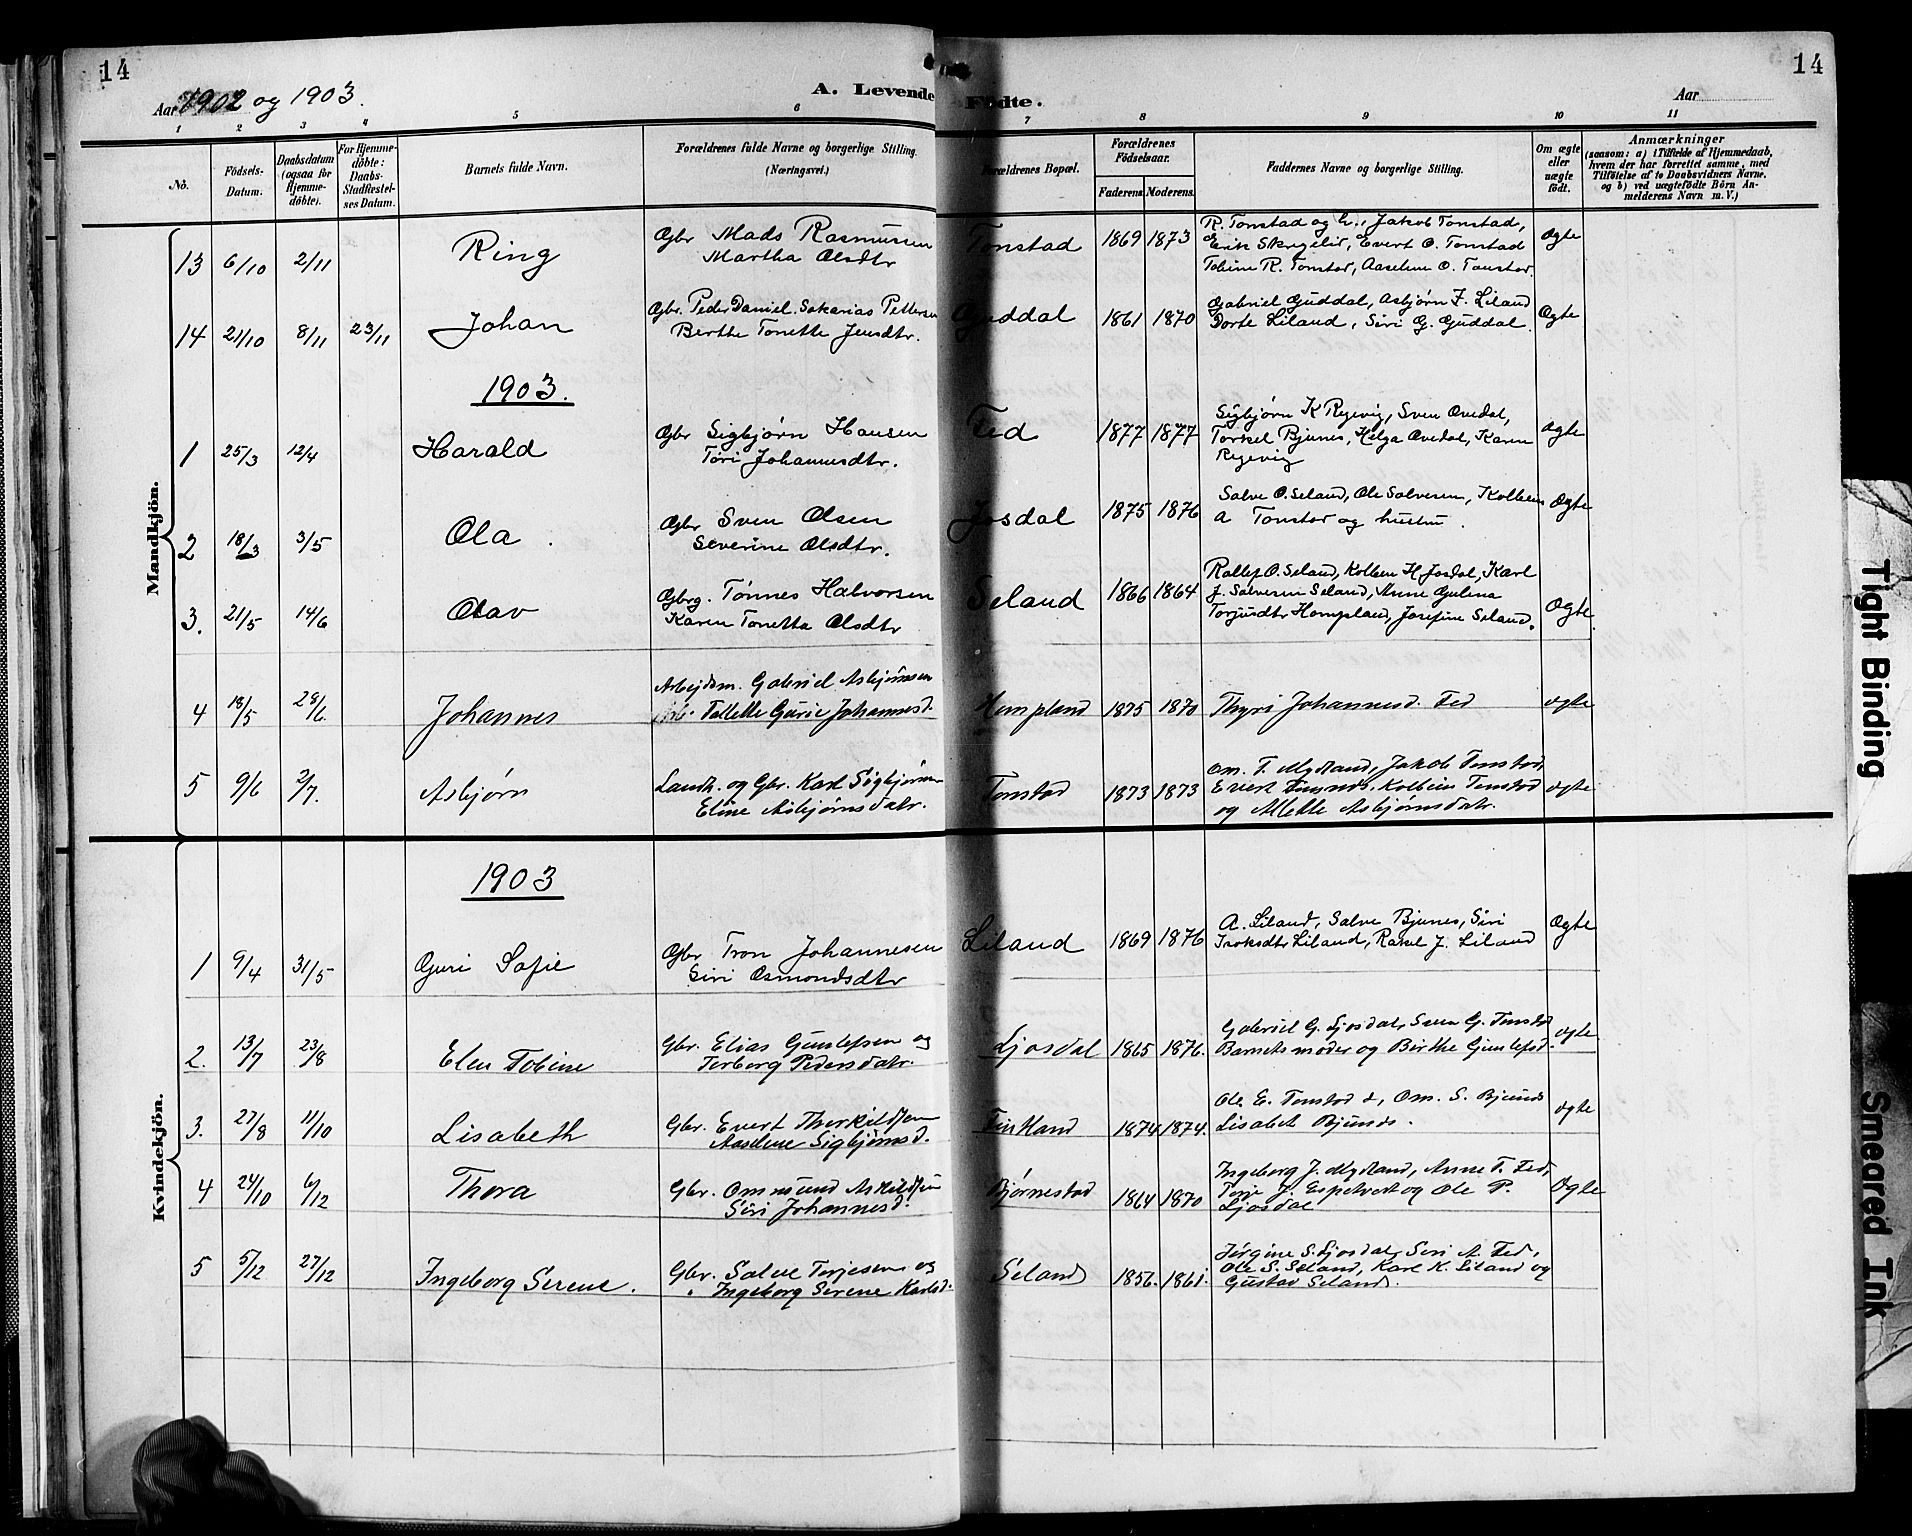 14
14
Aar 1902 og 1903.
A. Levende Fødte.
Aar
1 2 3 4 5 6 7 8 9 10 11
No.
Fødsels-Datum.
Daabsdatum (ogsaa for Hjemme-døbte).
For Hjemme-døbte: Daabs-Stadfæstel-ses Datum.
Barnets fulde Navn.
Forældrenes fulde Navne og borgerlige Stilling. (Næringsvei.)
Forældrenes Bopæl.
Forældrenes Fødselsaar.
Faderens. Moderens.
Faddernes Navne og borgerlige Stilling.
Om ægte eller uægte født.
Anmærkninger
(saasom: a) i Tilfælde af Hjemmedaab, hvem der har forrettet samme, med Tilføielse af to Daabsvidners Navne, og b) ved uægtefødte Børn An-melderens Navn m. V.)
Mandkjön.
13 6/10 2/11 Ring Gbr Mads Rasmussen Tonstad 1869 1873 R. Tonstad og h., Jakob Tonstad, Ægte
Martha Olsdtr Erik Skregelid, Evert O. Tonstad
Tobine R. Tonstad, Aaselene O. Tonstad.
14 21/10 8/11 23/11 Johan Gbr. Peder Daniel Sakarias Pettersen Guddal 1861 1870 Gabriel Guddal, Asbjørn F. Liland Ægte
Birthe Tonette Jensdtr. Dorte Liland, Siri G. Guddal.
1903.
1 25/3 12/4 Harald Gbr Sigbjørn Hansen Fed 1877 1877 Sigbjørn K Regevig, Sven Ovedal, Ægte
Tøri Johannesdtr. Torkel Bjunes, Helga Ovedal, Karen
Regevig
2 18/3 3/5 Ola. Gbr Sven Olsen Josdal 1875 1876 Salve O. Seland, Ole Salvesen, Kolbein Ægte
Severine Olsdtr. A Tonstad og hustru.
3. 21/5 14/6 Olav Gbrg. Tønnes Halvorsen Seland 1866 1864 Rollef O. Seland, Kolbein H Josdal, Karl
Karen Tonetta Olsdtr J. Salvesen Seland, Anne Gulena
Torjusdtr Hompland, Josefine Seland. Ægte.
4 18/5 29/6. Johannes Arbejdsm. Gabriel Asbjørnsen
Tallette Gurie Johannesd. Hompland 1875 1870 Thyri Johannesd. Fed ægte
5 9/6 2/7. Asbjørn Landh. og Gbr. Karl Sigbjørnsen Tonstad 1873 1873 Om. T. Mydland, Jakob Tonstad,
Eline Asbjørnsdatr. Evert Tonstad, Kolbein Tonstad ægte
og Allette Asbjørnsdatr.
Kvindekjön.
1903
1 9/4 31/5 Guri Sofie Gbr Tron Johannesen Liland 1869 1876 A. Liland, Salve Bjunes, Siri Ægte
Siri Osmondsdtr Liland, Rakel J. Liland
2. 13/7 23/8 Elen Tobine Gbr. Elias Gunlefsen og Ljosdal 1865 1876. Gabriel G. Ljosdal, Sven G. Tonstad ægte
Torborg Pedersdatr. Barnets moder og Birthe Gunlefsd.
3. 27/8 11/10 Lisabeth Gbr. Evert Therkildsen Finkland 1874 1874. Ole E. Tonstad, Om. S. Bjunes ægte
Aaselene Sigbjørnsd. Lisabet Bjunes.
4 24/10 6/12 Thora Gbr. Ommund Askildsen Bjørnestad 1864 1870 Ingeborg J. Mydland, Anne T. Fed, Ægte
Siri Johannesd. Torje J. Espetveit og Ole P.
Ljosdal
5 5/12 27/12 Ingeborg Serene. Gbr. Salve Torjesen og Seland 1856. 1861. Jørgine S. Ljosdal, Siri A. Fed,
Ingeborg Serene Karlsd. Ole S. Seland, Karl K. Liland og
Gustav Seland.
Tight Binding
Smeared Ink